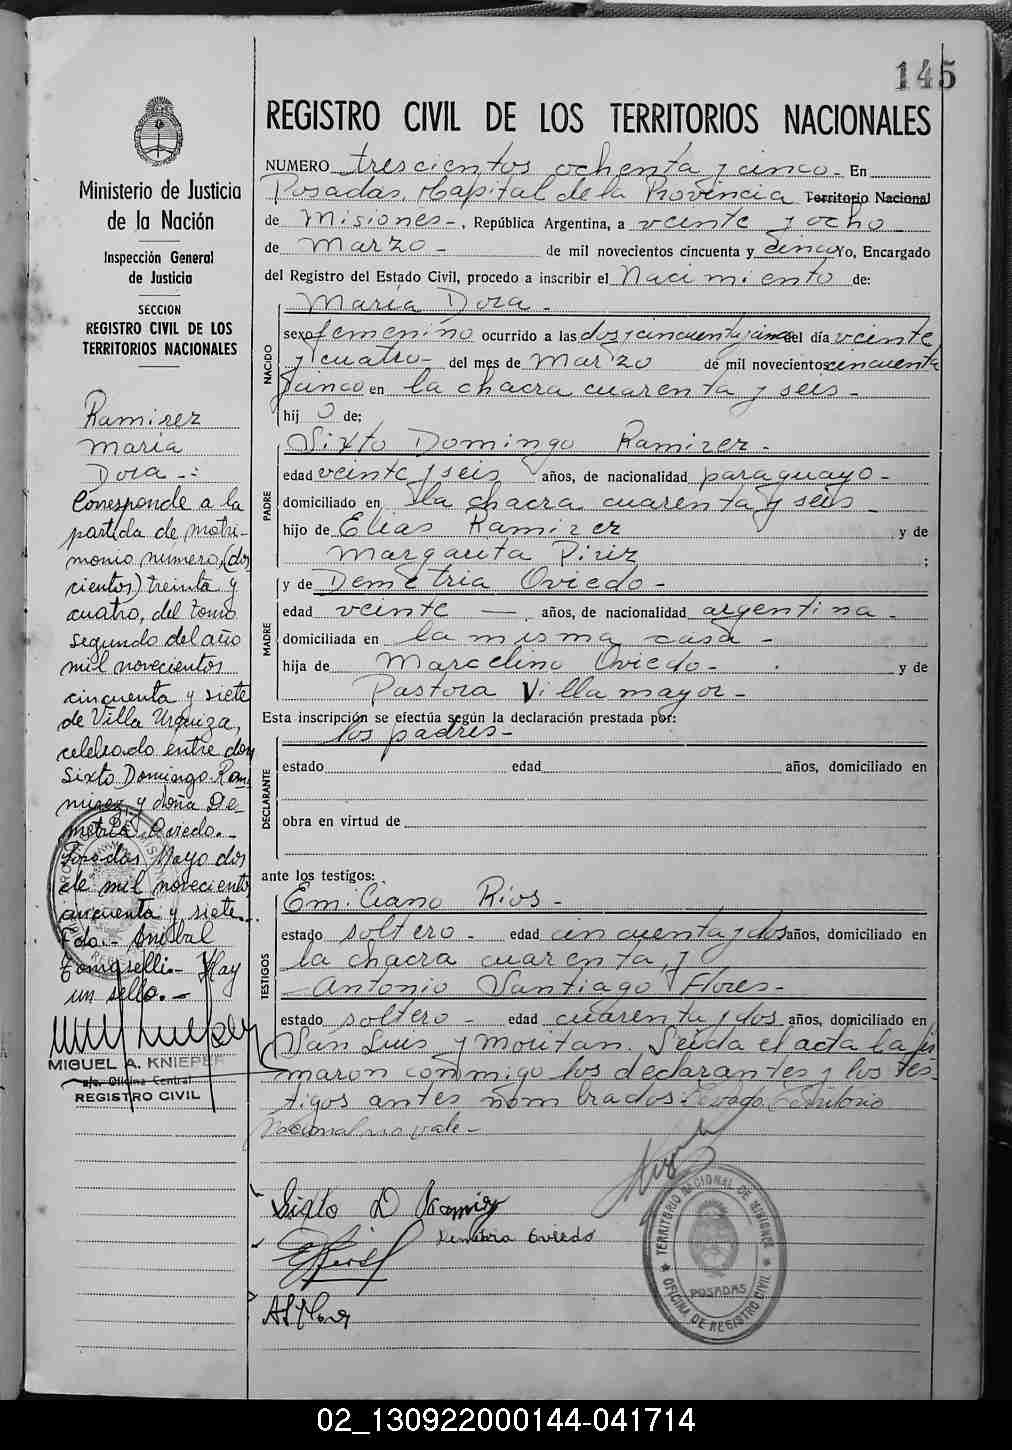 145
Ministerio de Justicia
de la Nación
Inspección General
de Justicia
SECCION
REGISTRO CIVIL DE LOS
TERRITORIOS NACIONALES
Ramirez
Maria
Dora -:
Corresponde a la
partida de matri-
monio numero (dos
cientos) treinta y
cuatro, del tomo
segundo del año
mil novecientos
cincuenta y siete
de Villa Urquiza,
celebrado entre don
Sixto Domingo Ram
mirez y doña De-
metria Oviedo.-
Posadas Mayo dos
de mil novecientos
cincuenta y siete.-
Fdo.- Anibal
Tomaselli.- Hay
un sello.-
MIGUEL A. KNIEPER
a/c. Oficina Central
REGISTRO CIVIL
REGISTRO CIVIL DE LOS TERRITORIOS NACIONALES
NUMERO trescientos ochenta y cinco - En
Posadas, Capital de la Provincia Territorio Nacional
de Misiones -, República Argentina, a veinte y ocho
de Marzo - de mil novecientos cincuenta y cinco Yo, Encargado
del Registro del Estado Civil, procedo a inscribir el Nacimiento de:
Maria Dora -
NACIDO
sexo femenino ocurrido a las dos y cincuenta y cinco del día veinte
y cuatro - del mes de Marzo de mil novecientos cincuenta
y cinco en la chacra cuarenta y seis -
hij a de:
PADRE
Sixto Domingo Ramirez -
edad veinte y seis años, de nacionalidad paraguayo -
domiciliado en la chacra cuarenta y seis
hijo de Elias Ramirez y de
Margarita Piriz ;
MADRE
y de Demetria Oviedo -
edad veinte — años, de nacionalidad argentina -
domiciliada en la misma casa -
hija de Marcelino Oviedo - y de
Pastora Villamayor -
Esta inscripción se efectúa según la declaración prestada por:
los padres -
DECLARANTE
estado edad años, domiciliado en
obra en virtud de
ante los testigos:
TESTIGOS
Emiliano Rios -
estado soltero - edad cincuenta y dos años, domiciliado en
la chacra cuarenta, y
Antonio Santiago Flores -
estado soltero - edad cuarenta y dos años, domiciliado en
San Luis y Moritan. Leida el acta la fir
maron conmigo los declarantes y los tes-
tigos antes nombrados. Territorio
Nacional no vale -
Sixto D Ramirez
Demetria Oviedo
TERRITORIO NACIONAL DE MISIONES
POSADAS
OFICINA DE REGISTRO CIVIL
02_130922000144-041714